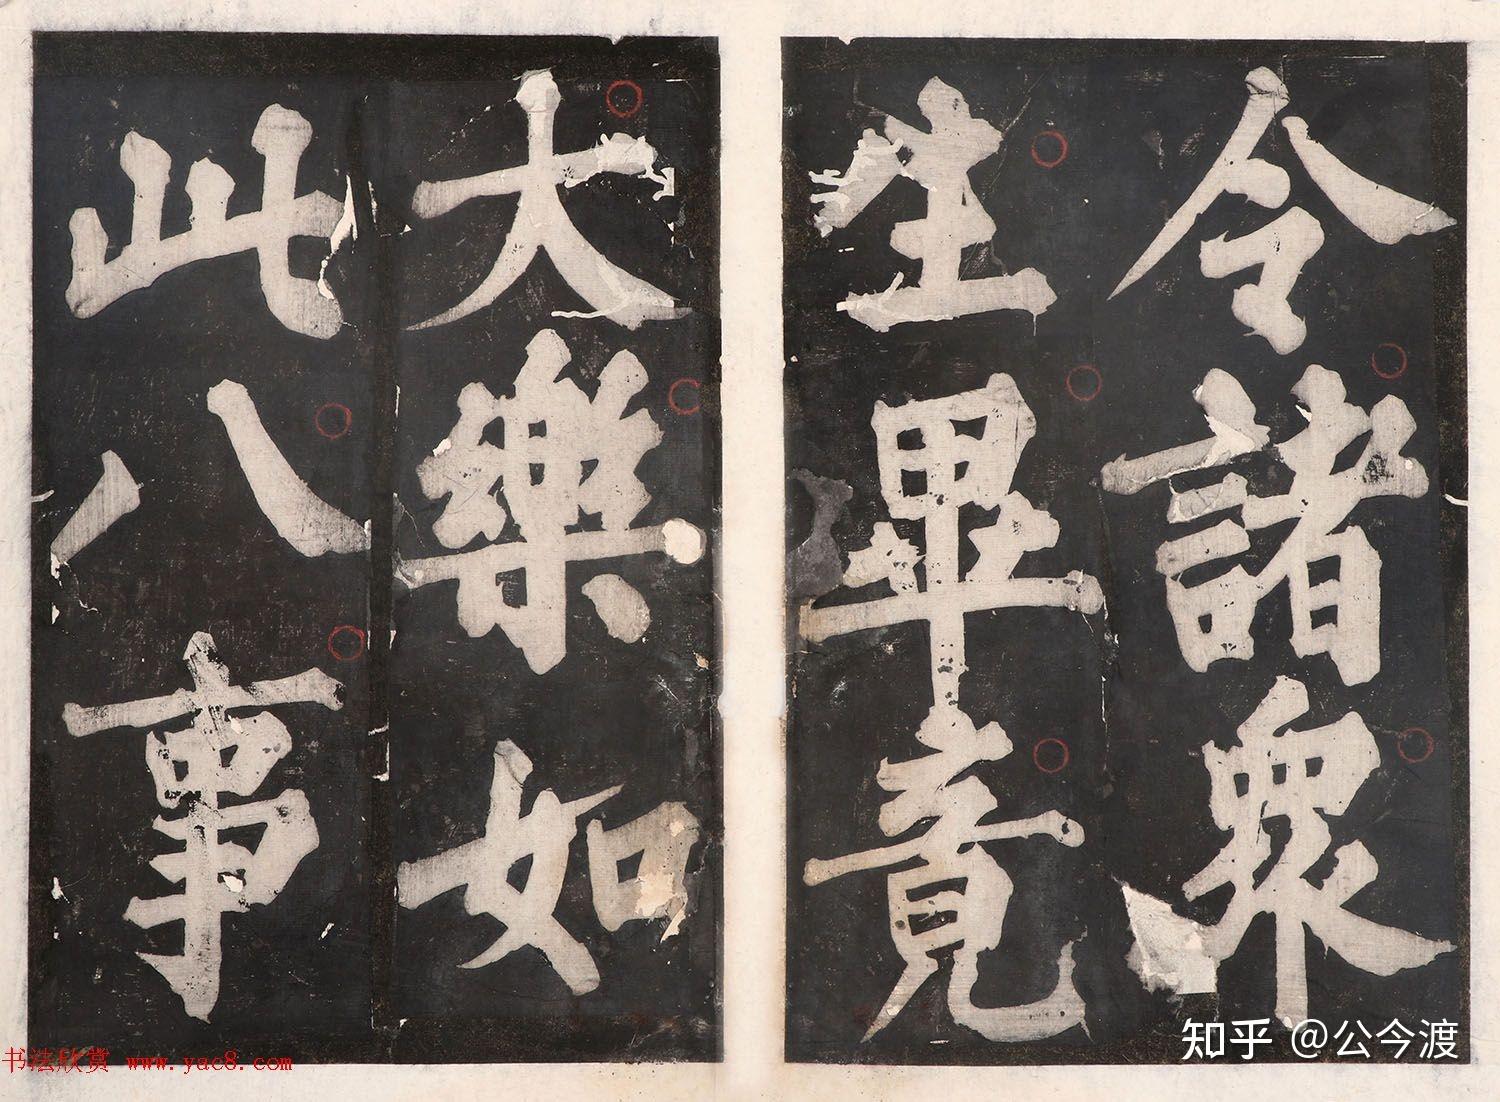 令諸衆
生畢竟
大樂如
此八事
知乎 @公今渡
书法欣赏 www.yac8.com